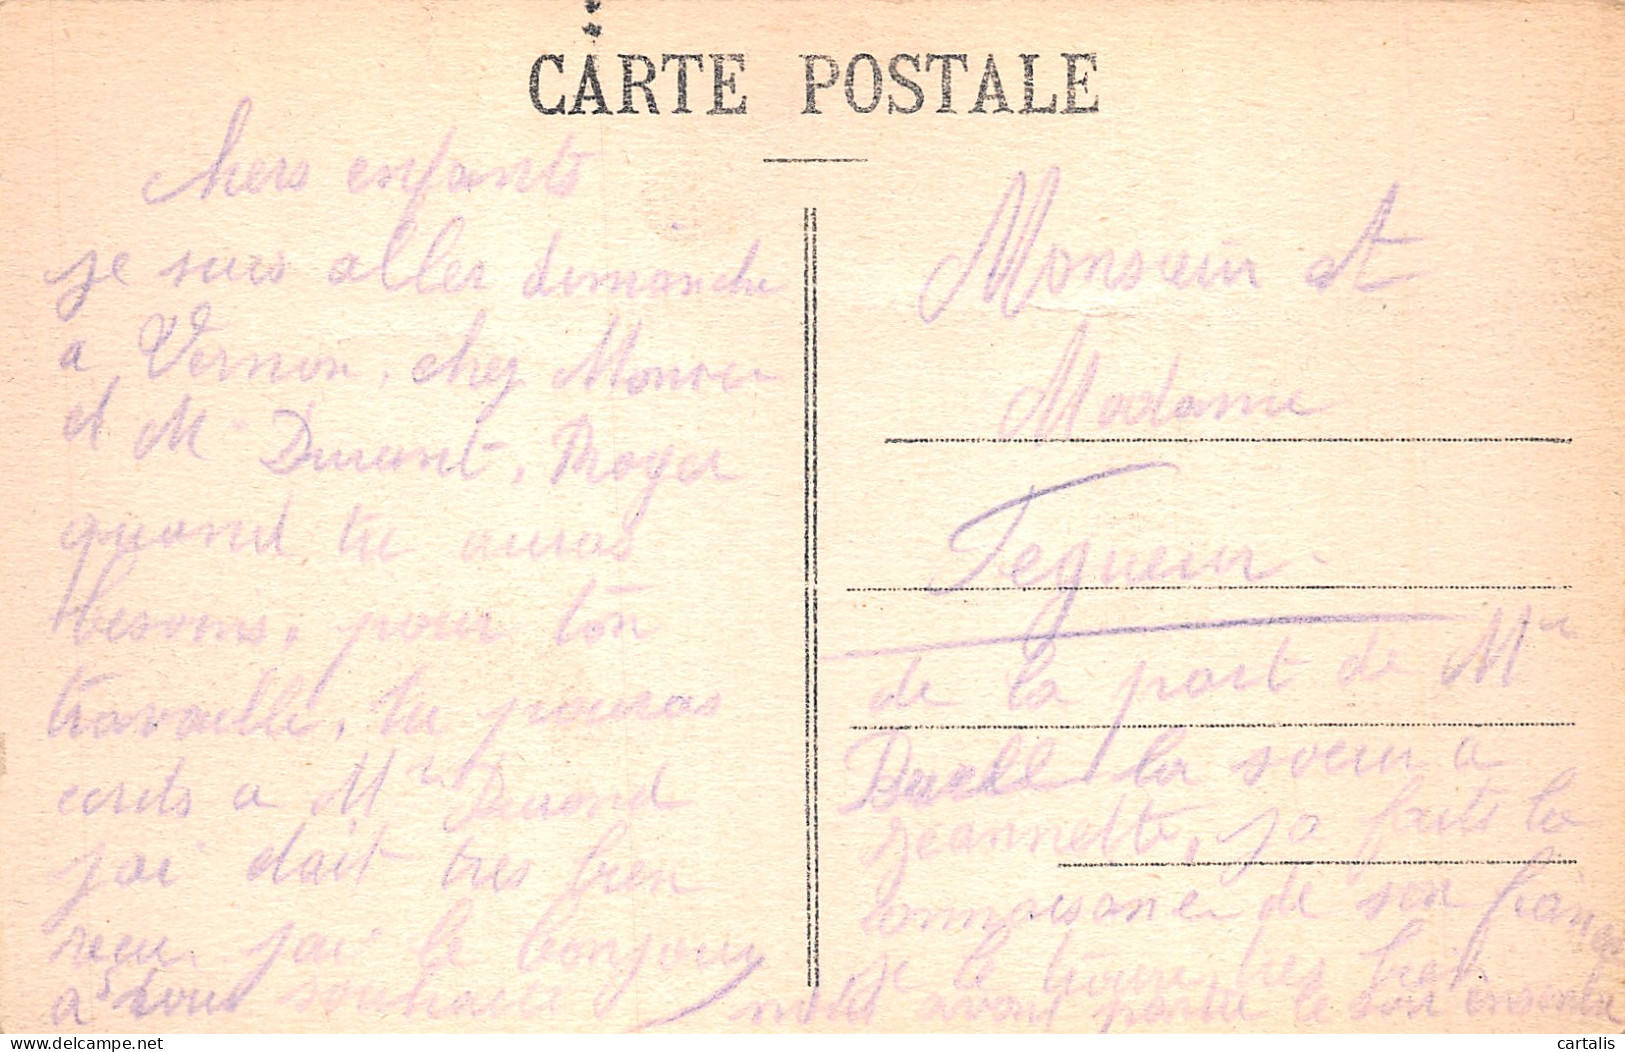 CARTE POSTALE
chers enfants
je suis aller dimanche
a Vernon, chez Monsieu
et Me Durant, Roger
quand tu auras
besoins, pour ton
travaille, tu pouras
ecrits a Mr Durand
j'ai était tres bien
reçu. j'ai le bonjour
a tous souhaite
Monsieur et
Madame
Tegueur.
de la part de Mr
la soeur a
jeannette, ja faits la
connaisance de son fiance
je le trouve tres bien
nous avont partie le soir ensemble
cartalis
delcampe.net